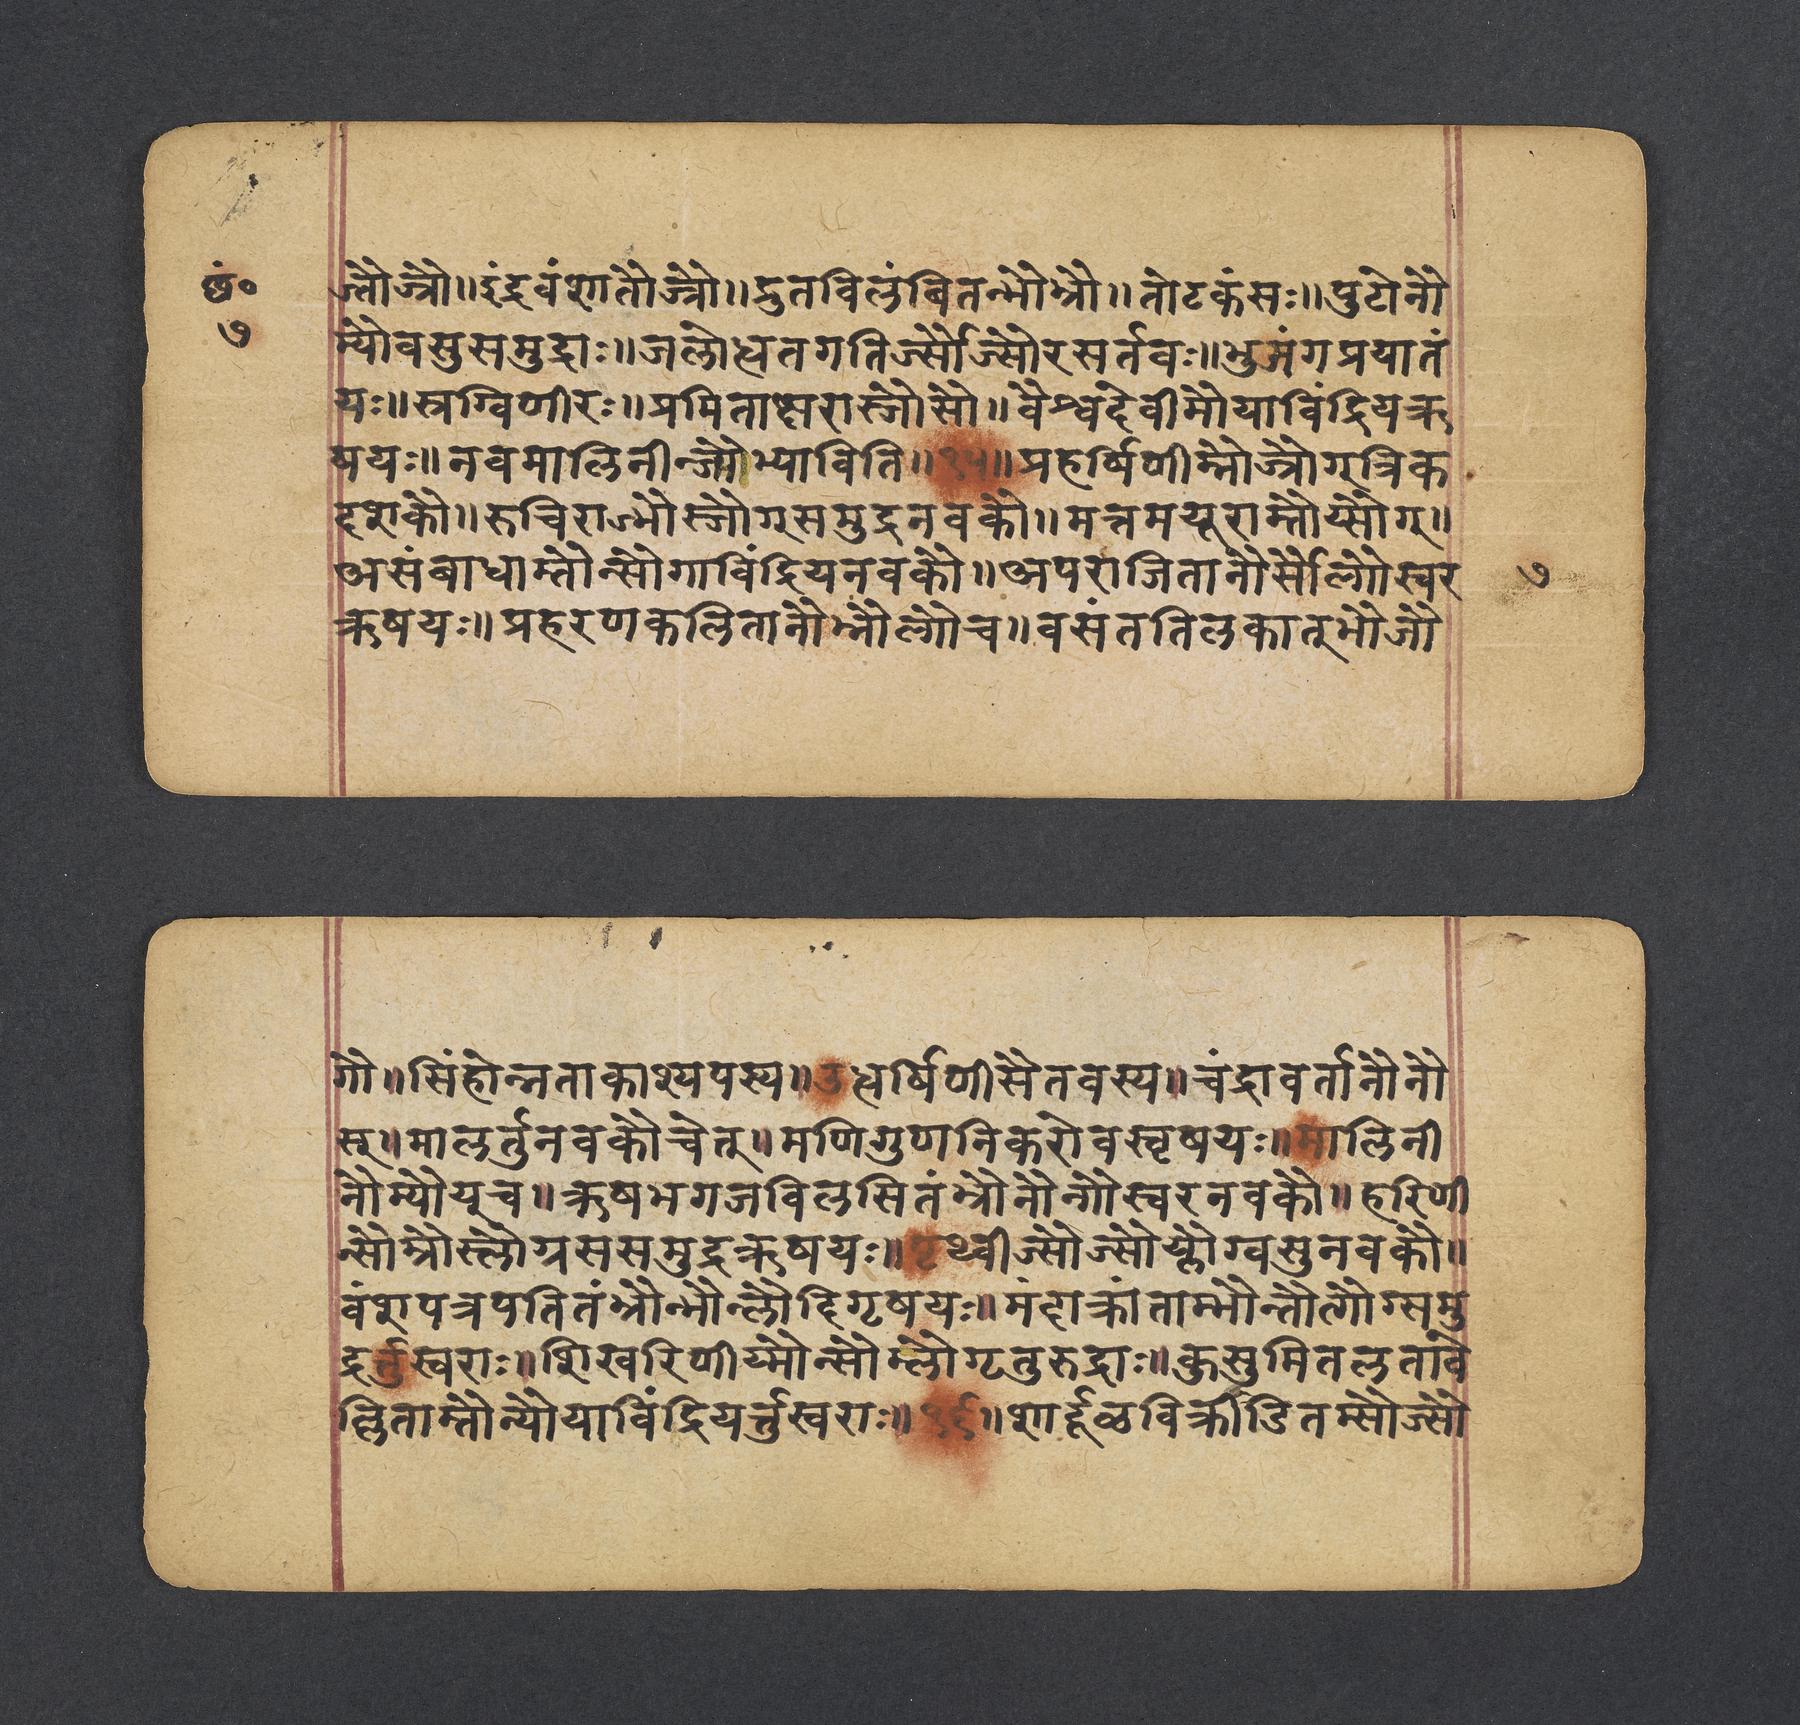 छं०
७
ज्तौज्रौ॥इंद्रवंशातौज्रौ॥द्रुतविलंबितन्भौभ्रौ॥तोटकंसः॥पुटोनौ
म्यौवसुसमुद्राः॥जलोद्धतगतिर्ज्सौर्ज्सौरसर्तवः॥भुजंगप्रयातं
यः॥स्रग्विणीरः॥प्रमिताक्षरास्जौसौ॥वैश्वदेवीमौयाविंद्रियऋ
षयः॥नवमालिनीन्जौभ्याविति॥१५॥प्रहर्षिणीम्नौज्रौगूत्रिक
दशकौ॥रुचिराज्भौस्जौग्समुद्रनवकौ॥मत्तमयूराम्तौय्सौग्॥
असंबाधाम्तौन्सौगाविंद्रियनवकौ॥अपराजितानौर्सौल्गौस्वर
ऋषयः॥प्रहरणकलितानौभ्नौल्गौच॥वसंततिलकात्भौजौ
७
गौ॥सिंहोन्नताकाश्यपस्य॥उद्धर्षिणीसैतवस्य॥चंद्रावर्तानौनौ
स्॥मालर्तुनवकौचेत्॥मणिगुणनिकरोवस्वृषयः॥मालिनी
नौम्यौय्च॥ऋषभगजविलसितंभ्रौनौन्गौस्वरनवकौ॥हरिणी
न्सौम्रौस्लौग्रससमुद्रऋषयः॥पृथ्वीज्सौज्सौय्लौग्वसुनवकौ॥
वंशपत्रपतितंभ्रौन्भौन्लौदिगृषयः॥मंदाक्रांताम्भौन्तौत्गौग्समु
द्रर्तुस्वराः॥शिखरिणीय्मौन्सौभ्लौगृतुरुद्राः॥कुसुमितलतावे
ल्लिताम्तौन्यौयाविंद्रियर्त्तुस्वराः॥१६॥शार्दूळविक्रीडितम्सौज्सौ